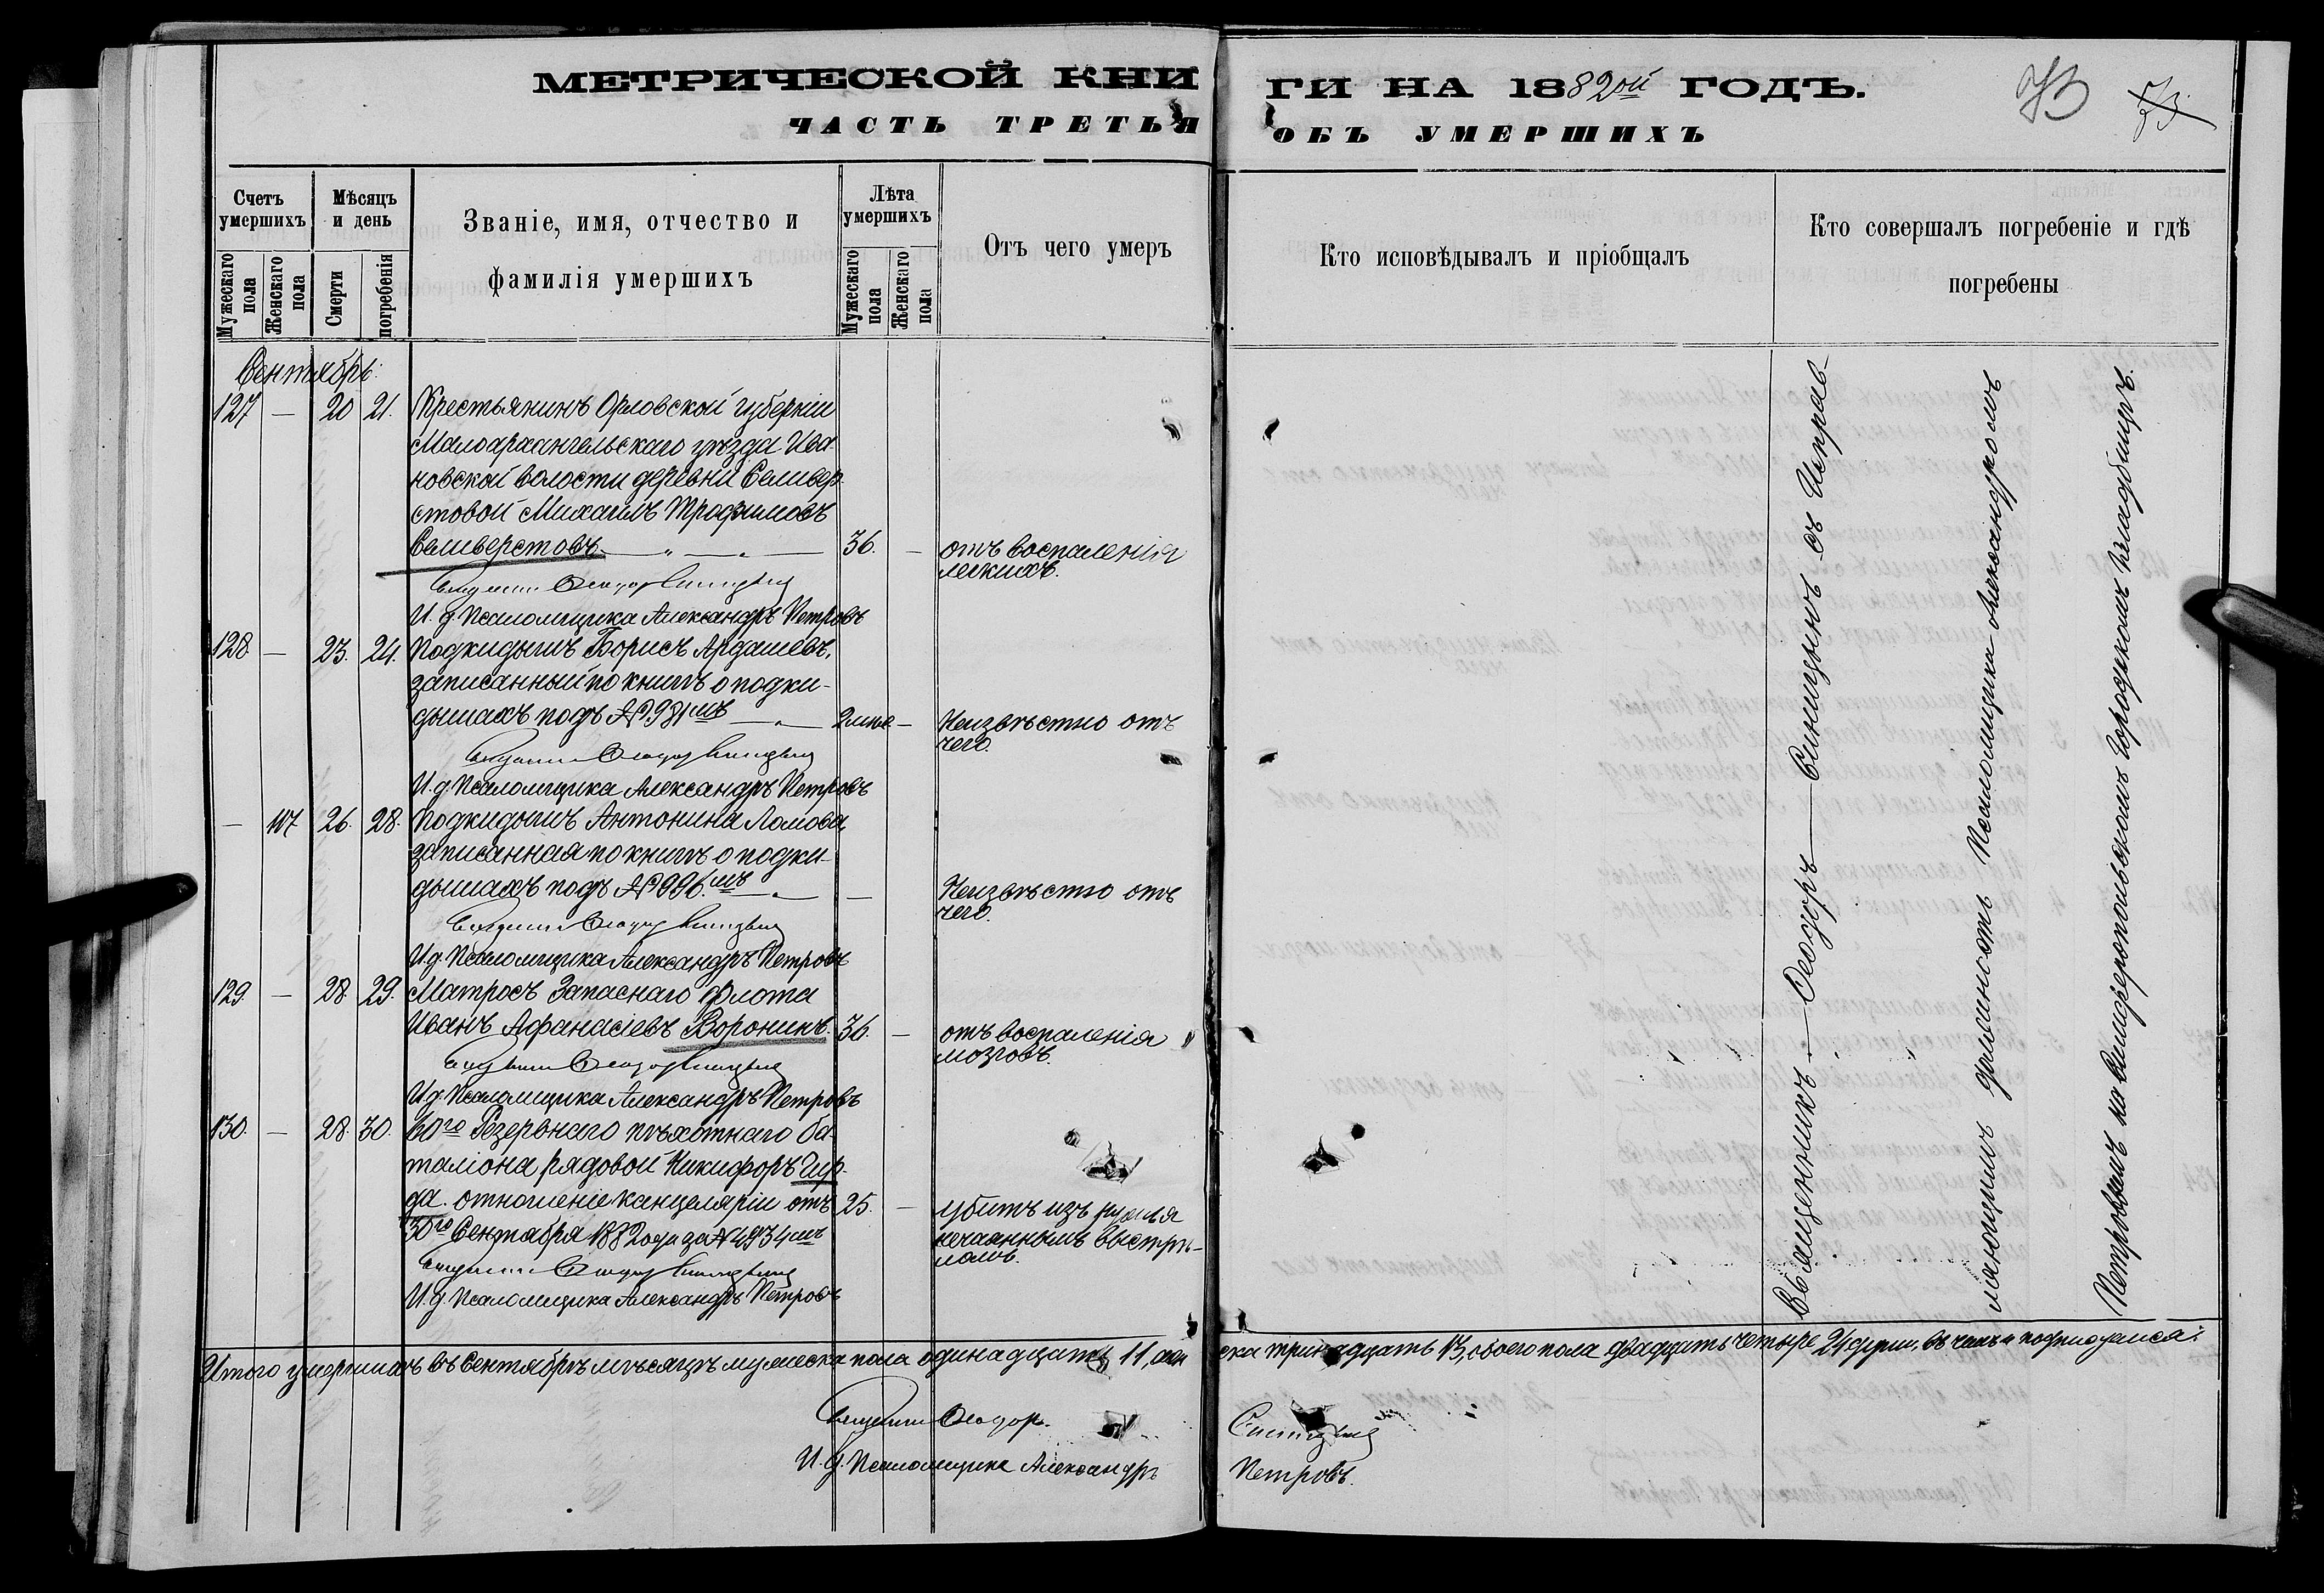 МЕТРИЧЕСКОЙ КНИ
ГИ НА 1882ой ГОДЪ.
73
73.
ЧАСТЬ ТРЕТЬЯ
ОБЪ УМЕРШИХЪ
Счетъ умершихъ
Мужескаго пола
Женскаго пола
Мѣсяцъ и день
Смерти
погребенія
Званіе, имя, отчество и
фамилія умершихъ
Лѣта умершихъ
Мужескаго пола
Женскаго пола
Отъ чего умеръ
Кто исповѣдывалъ и пріобщалъ
Кто совершалъ погребеніе и гдѣ
погребены
Сентябрь:
127 — 20 21. Крестьянинъ Орловской губерніи
Малоархангельскаго уѣзда Ива-
новской волости деревни Селивер-
стовой Михаилъ Трофимовъ
Селиверстовъ — " — " — 36. — отъ воспаленія
легкихъ.
Священникъ Ѳеодоръ Синицынъ
И. д. Псаломщика Александръ Петровъ
128 — 23. 24. Подкидышъ Борисъ Ардашевъ,
записанный по книгѣ о подки-
дышахъ подъ № 981мъ — " — Неизвѣстно отъ
чего.
Священникъ Ѳеодоръ Синицынъ
И. д. Псаломщика Александръ Петровъ
— 107 26. 28. Подкидышъ Антонина Ломова,
записанная по книгѣ о подки-
дышахъ подъ № 996.мъ — " — Неизвѣстно отъ
чего.
Священникъ Ѳеодоръ Синицынъ
И. д. Псаломщика Александръ Петровъ
129. — 28. 29. Матросъ Запаснаго флота
Иванъ Афанасіевъ Воронинъ. 36. — отъ воспаленія
мозговъ.
Священникъ Ѳеодоръ Синицынъ
И. д. Псаломщика Александръ Петровъ
130. — 28. 30. 60го Резервнаго пѣхотнаго ба-
таліона рядовой Никифоръ
да. отношеніе канцеляріи отъ 25. — убитъ изъ ружья
30го Сентября 1882 года за № 4934мъ нечаяннымъ выстрѣ-
ломъ.
Священникъ Ѳеодоръ Синицынъ
И. д. Псаломщика Александръ Петровъ
Священникъ — Ѳеодоръ — Синицынъ съ Исправ-
ляющимъ должность Псаломщика Александромъ
Петровымъ на Симферопольскомъ Городскомъ Кладбищѣ.
Итого умершихъ въ Сентябрѣ мѣсяцѣ мужеска пола одинадцать 11, жен
ска тринадцать 13, обоего пола двадцать четыре 24 души, въ чемъ и подписуемся:
Священникъ Ѳеодоръ Синицынъ
И. д. Псаломщика Александръ Петровъ.